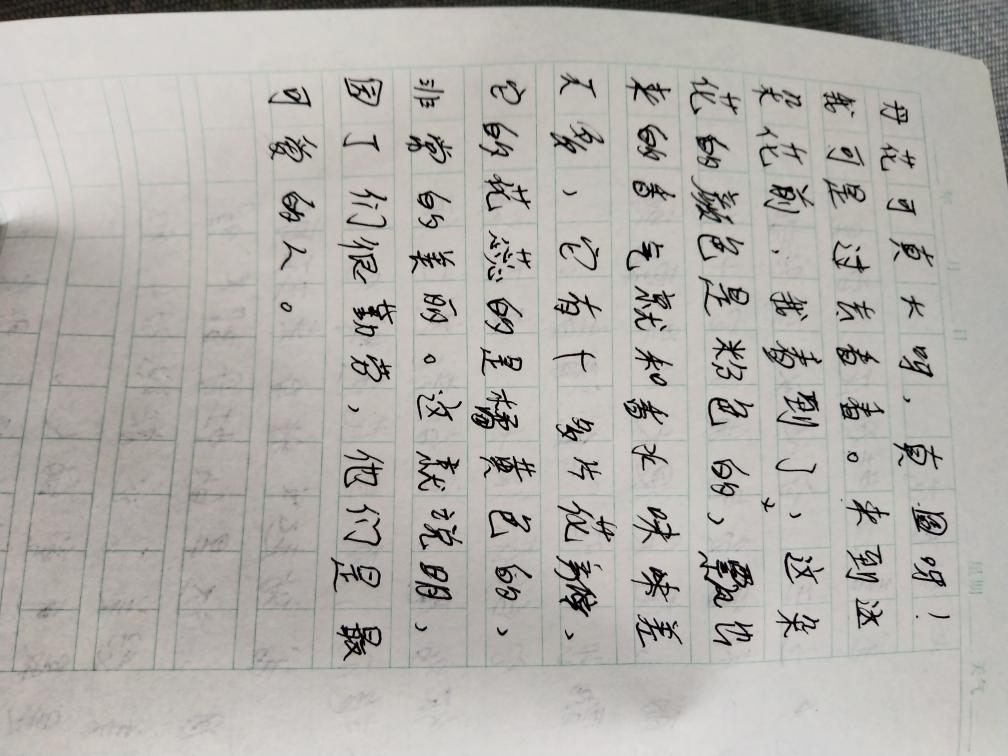 丹花可真大呀，真圆呀！
我可是过去看看。来到这
朵花前，我看到了，这朵
花的颜色是粉色的，飘出
来的香气就和香水味味差
不多，它有十多片花瓣，
它的花蕊的是橘黄色的，
非常的美丽。这就说明，
园丁们很勤劳，他们是最
可爱的人。